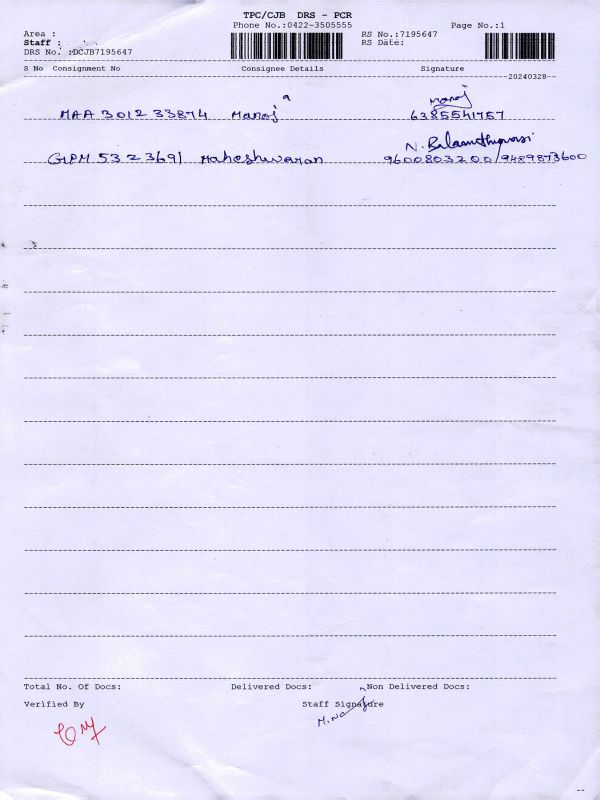 TPC/CJB DRS - PCR
Phone No.:0422-3505555 Page No.:1
Area : RS No.:7195647
Staff : RS Date:
DRS No. :DCJB7195647
S No Consignment No Consignee Details Signature
20240328
Manoj
MAA 301233874 Manoj 6385541757
N. Balaamthyarasi
GPM 5323691 Maheshwaran 9600803200/9489873600
Total No. Of Docs: Delivered Docs: Non Delivered Docs:
Verified By Staff Signature